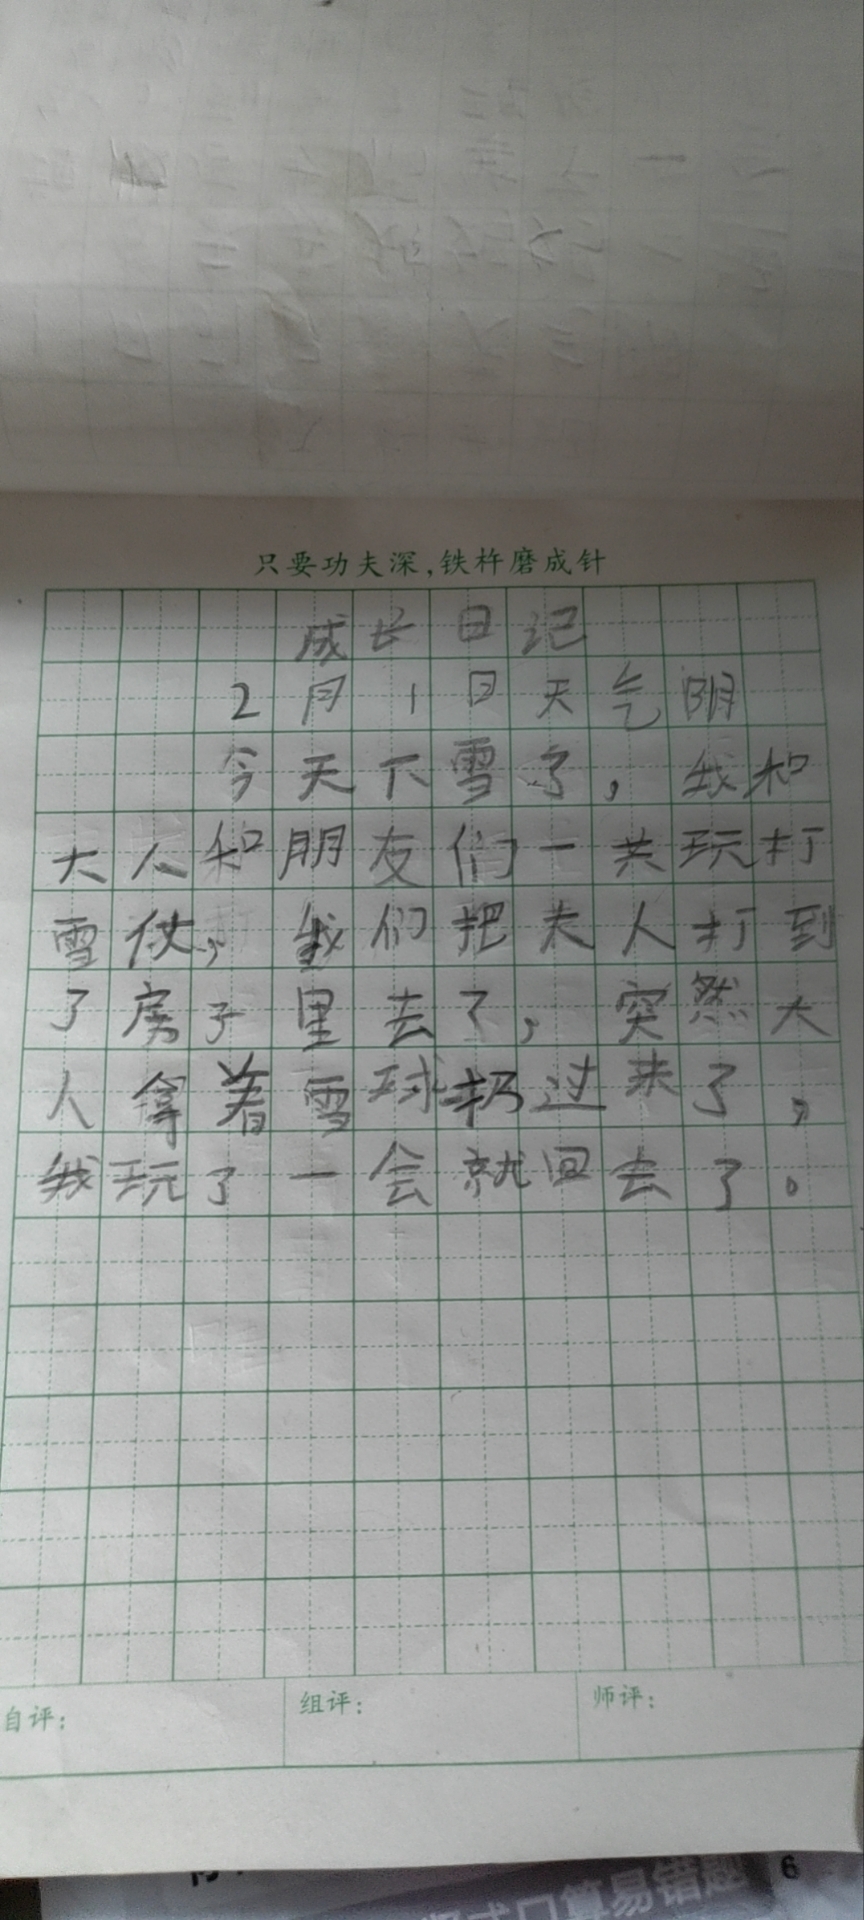 只要功夫深,铁杵磨成针
成长日记
2月1日天气阴
今天下雪了，我和
大人和朋友们一共玩打
雪仗，我们把大人打到
了房子里去了，突然大
人拿着雪球扔过来了，
我玩了一会就回去了。
自评：
组评：
师评：
口算易错题
6